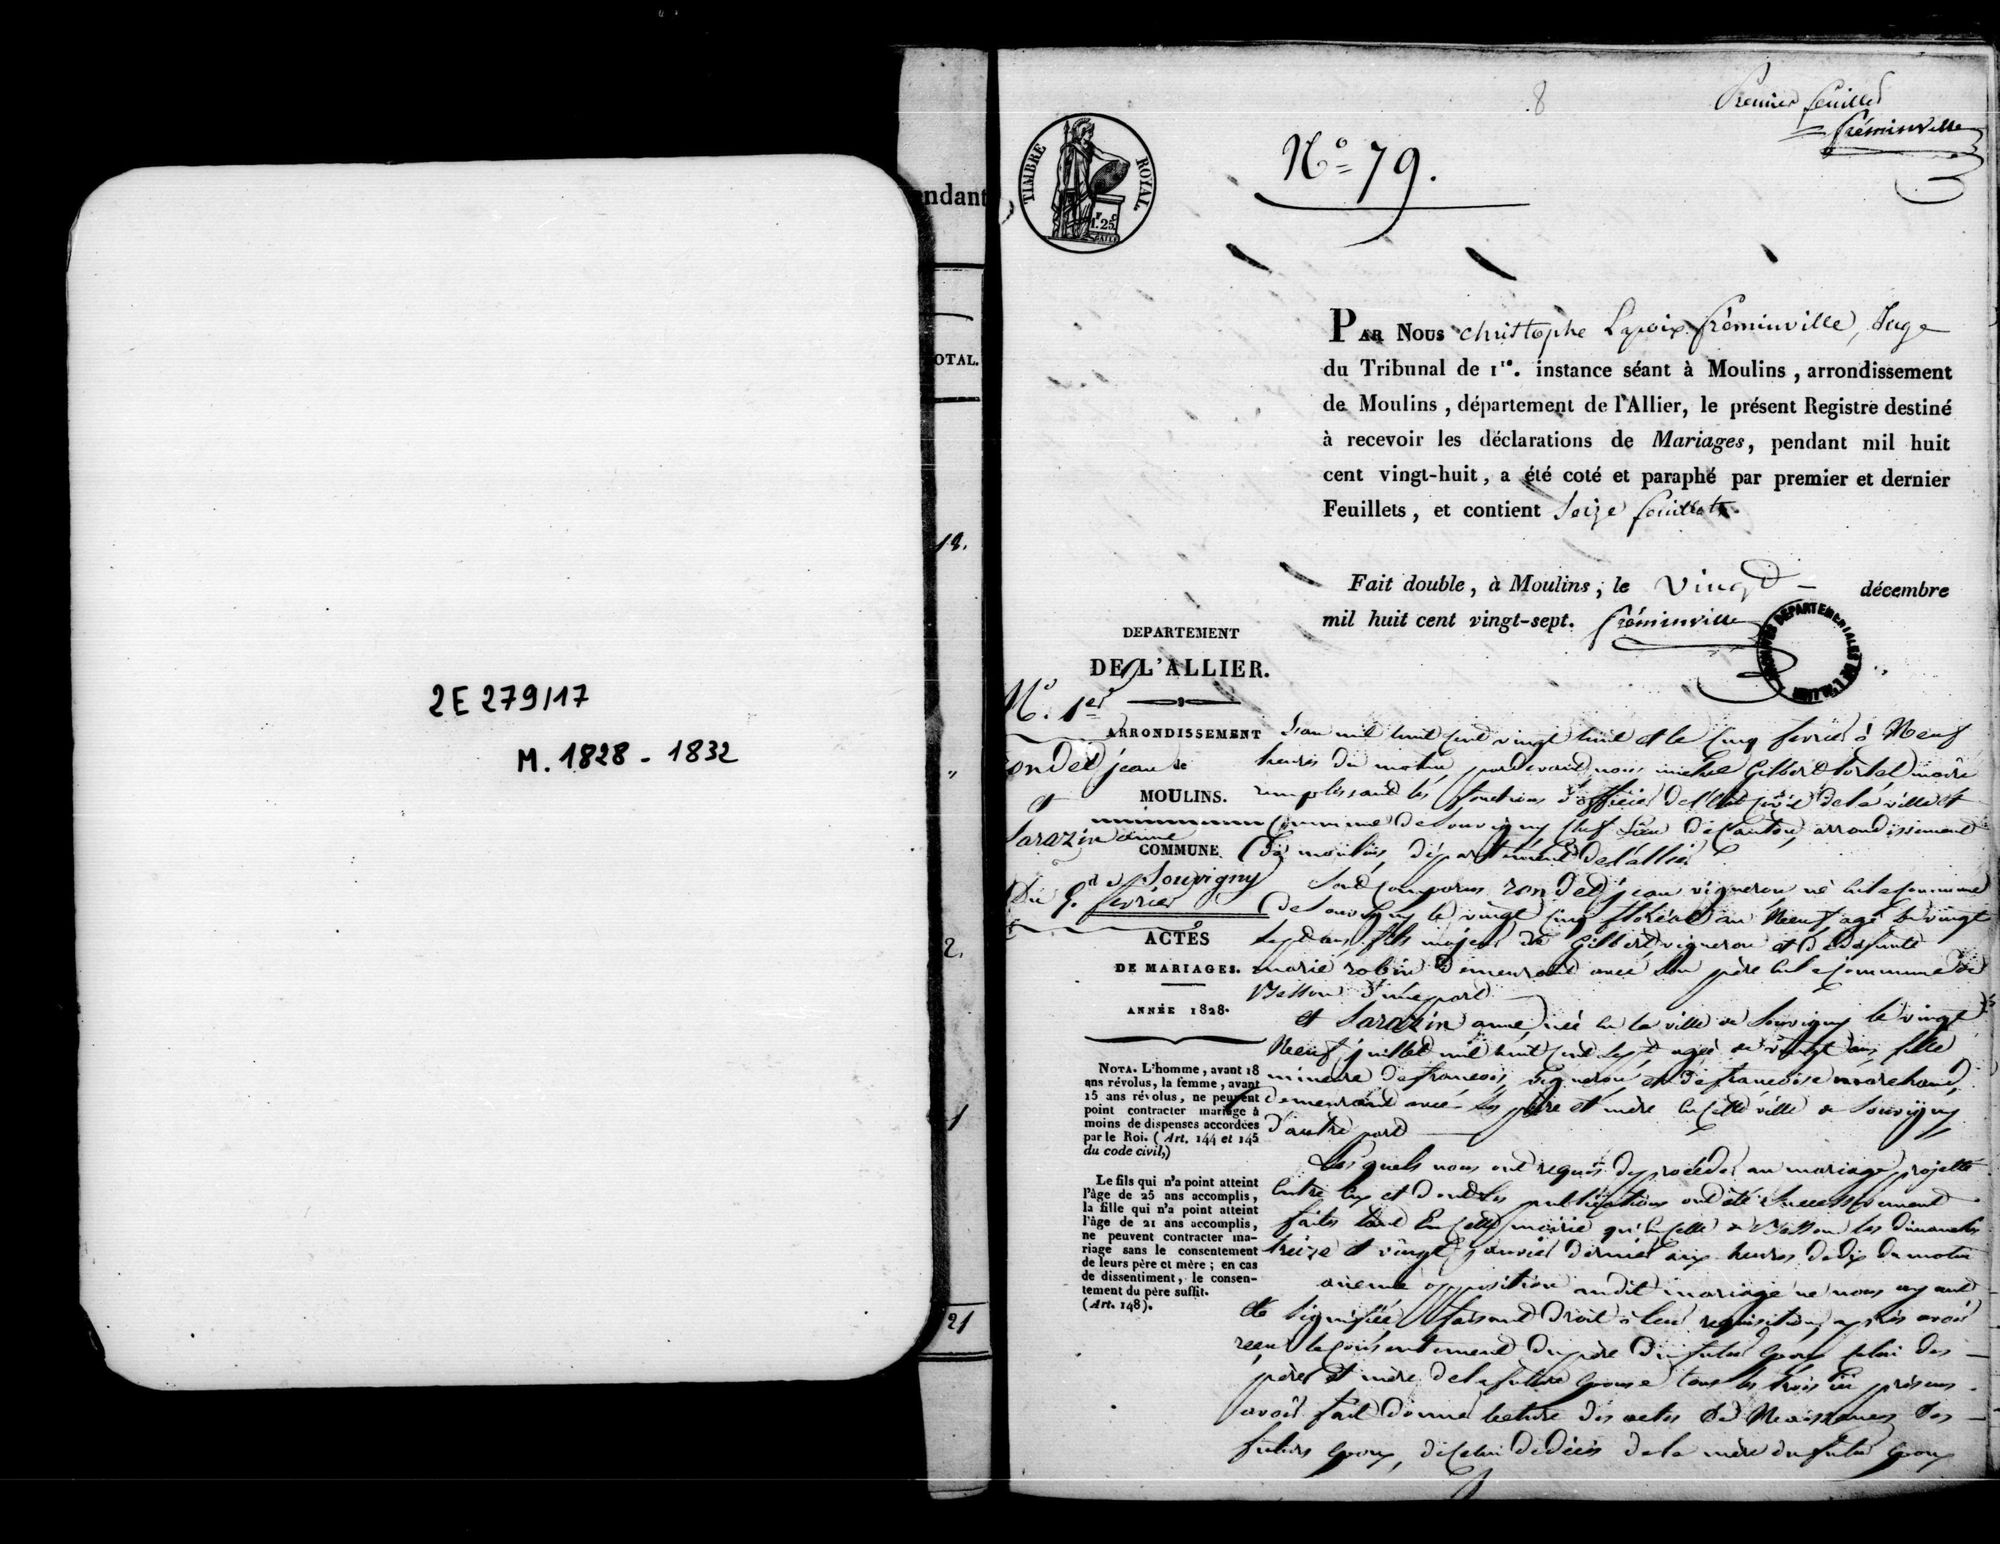 2E 279/17
M. 1828 - 1832
endant
TOTAL.
18.
"
2.
1
21
8
Premier feuillet
Fréminville
TIMBRE ROYAL.
1.25
N° 79.
PAR NOUS Christophe Lapoix fréminville, Juge
du Tribunal de 1re. instance séant à Moulins, arrondissement
de Moulins, département de l'Allier, le présent Registre destiné
à recevoir les déclarations de Mariages, pendant mil huit
cent vingt-huit, a été coté et paraphé par premier et dernier
Feuillets, et contient Seize feuillets.
Fait double, à Moulins, le Vingt décembre
mil huit cent vingt-sept. fréminville
ARCHIVES DEPARTEMENTALES DE L'ALLIER
DEPARTEMENT
DE L'ALLIER.
N°. 1er
ARRONDISSEMENT
de
MOULINS.
COMMUNE
d e Souvigny
ACTES
DE MARIAGES.
ANNÉE 1828.
ondet jean
et
Sarazin anne
Du 5. fevrier
NOTA. L'homme, avant 18
ans révolus, la femme, avant
15 ans révolus, ne peuvent
point contracter mariage à
moins de dispenses accordées
par le Roi. (Art. 144 et 145
du code civil,)
Le fils qui n'a point atteint
l'âge de 25 ans accomplis,
la fille qui n'a point atteint
l'âge de 21 ans accomplis,
ne peuvent contracter ma-
riage sans le consentement
de leurs père et mère; en cas
de dissentiment, le consen-
tement du père suffit.
(Art. 148).
L'an mil huit cent vingt huit et le cinq fevrier à Neuf
heures du matin pardevant nous michel Gilbert tortel maire
remplissant les fonctions d'officier de l'état civil de la ville et
commune de Souvigny chef lieu de canton, arrondissement
de moulins, département de l'allier
Sont comparus rondet jean vigneron né en la commune
de Souvigny le vingt cinq floréal an Neuf agé de vingt
sept ans, fils majeur de Gilbert vigneron et de defunte
marie robin demeurant avec son père en la commune de
Besson d'une part
et Sarazin anne, née en la ville de Souvigny le vingt
Neuf juillet mil huit cent sept, agée de vingt ans, fille
mineure de francois, vigneron, et de francoise marchand,
demeurant avec ses père et mère en cette ville de Souvigny
d'autre part
Lesquels nous ont requis de procéder au mariage projetté
entre eux et dont les publications ont été successivement
faites tant En cette mairie qu'en celle de Besson les dimanches
treize et vingt janvier dernier aux heures de dix du matin
aucune opposition audit mariage ne nous ayant
été signifiée, faisant droit à leur requisition, après avoir
reçu le consentement du père du futur époux celui des
père et mère de la future épouse tous les trois ici présens
avoir fait donner lecture des actes de Naissances des
futurs époux, de celui de décès de la mère du futur époux